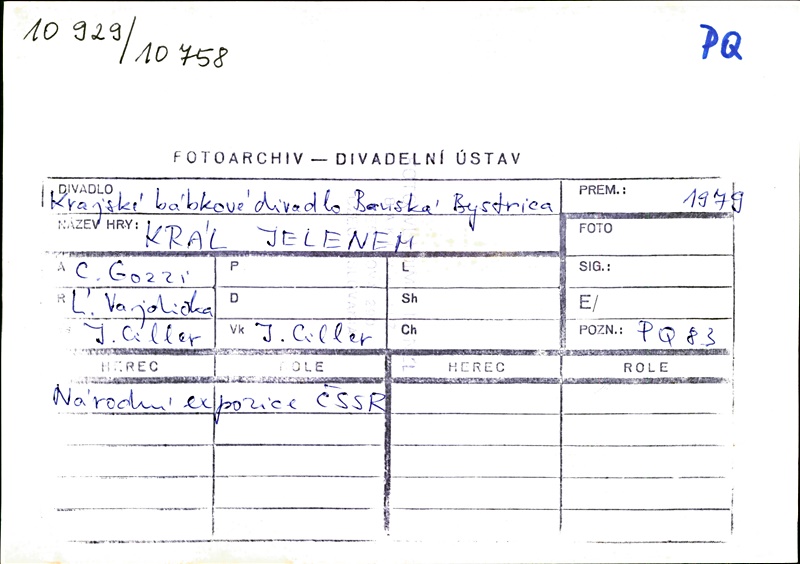 10 929/10 758
PQ
FOTOARCHIV — DIVADELNÍ ÚSTAV
DIVADLO Krajské bábkové divadlo Banská Bystrica PREM.: 1979
NÁZEV HRY: KRÁL JELENEM FOTO
A C. Gozzi P L SIG.:
R D Sh E/
J. Ciller Vk J. Ciller Ch POZN.: PQ 83
HEREC ROLE HEREC ROLE
Národní expozice ČSSR